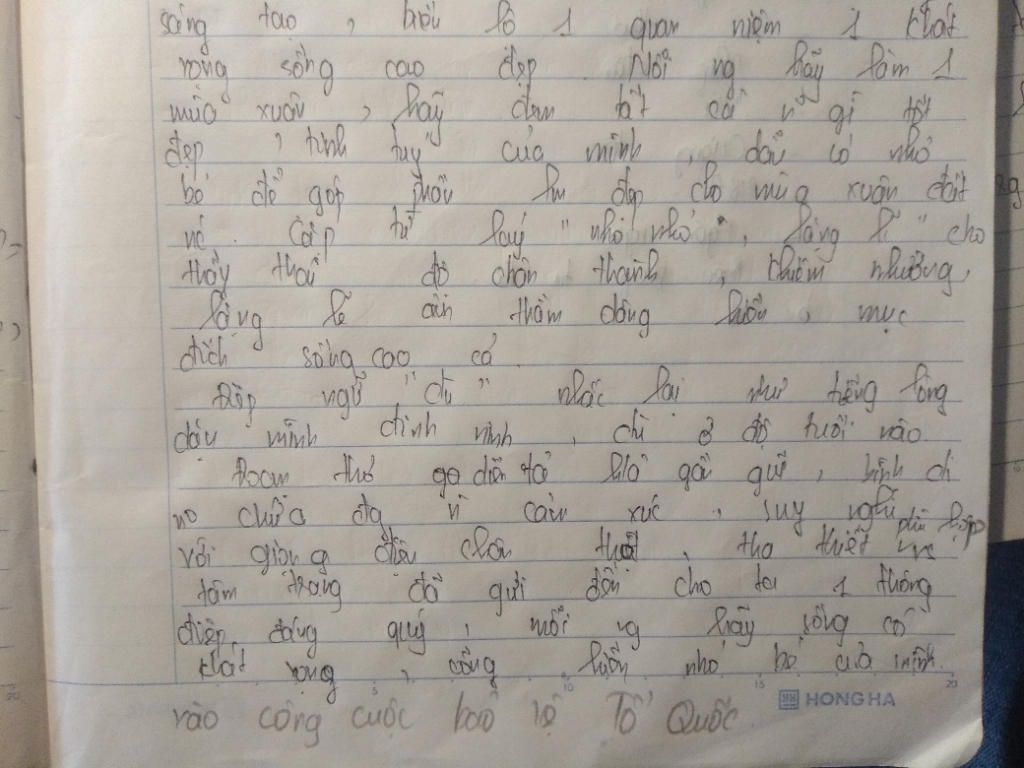 sáng tạo, biểu lộ 1 quan niệm 1 khát
vọng sống cao đẹp. Mỗi ng hãy làm 1
mùa xuân, hãy đem tất cả n~ gì tốt
đẹp, tinh túy của mình, dẫu có nhỏ
bé để góp phần làm đẹp cho mùa xuân đất
nc. Cặp từ láy "nho nhỏ", lặng lẽ" cho
thấy thái độ chân thành, khiêm nhường,
lặng lẽ âm thầm dâng hiến, mục
đích sống cao cả
Điệp ngữ "dù" nhắc lại như tiếng lòng
dặn mình đinh ninh, dù ở độ tuổi nào
Đoạn thơ diễn tả gần gũi, bình dị
nó chứa đựng n~ cảm xúc, suy nghĩ phù hợp
với giọng điệu chân thật, tha thiết
tâm trạng đã gửi đến cho ta 1 thông
điệp đáng quý, mỗi ng hãy sống có
khát vọng, cống hiến nhỏ bé của mình
vào công cuộc bảo vệ Tổ Quốc
HONG HA
5 10 15 20